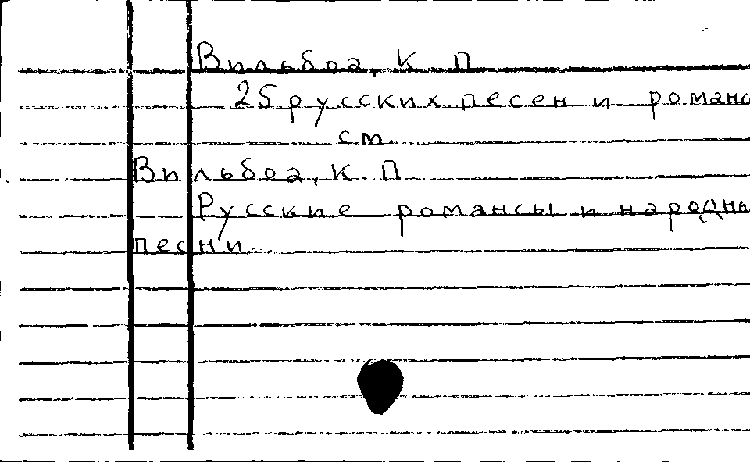 Вильбоа, К П
25 русских песен и романс
см
Вильбоа, К П
Русские романсы и народны
песни